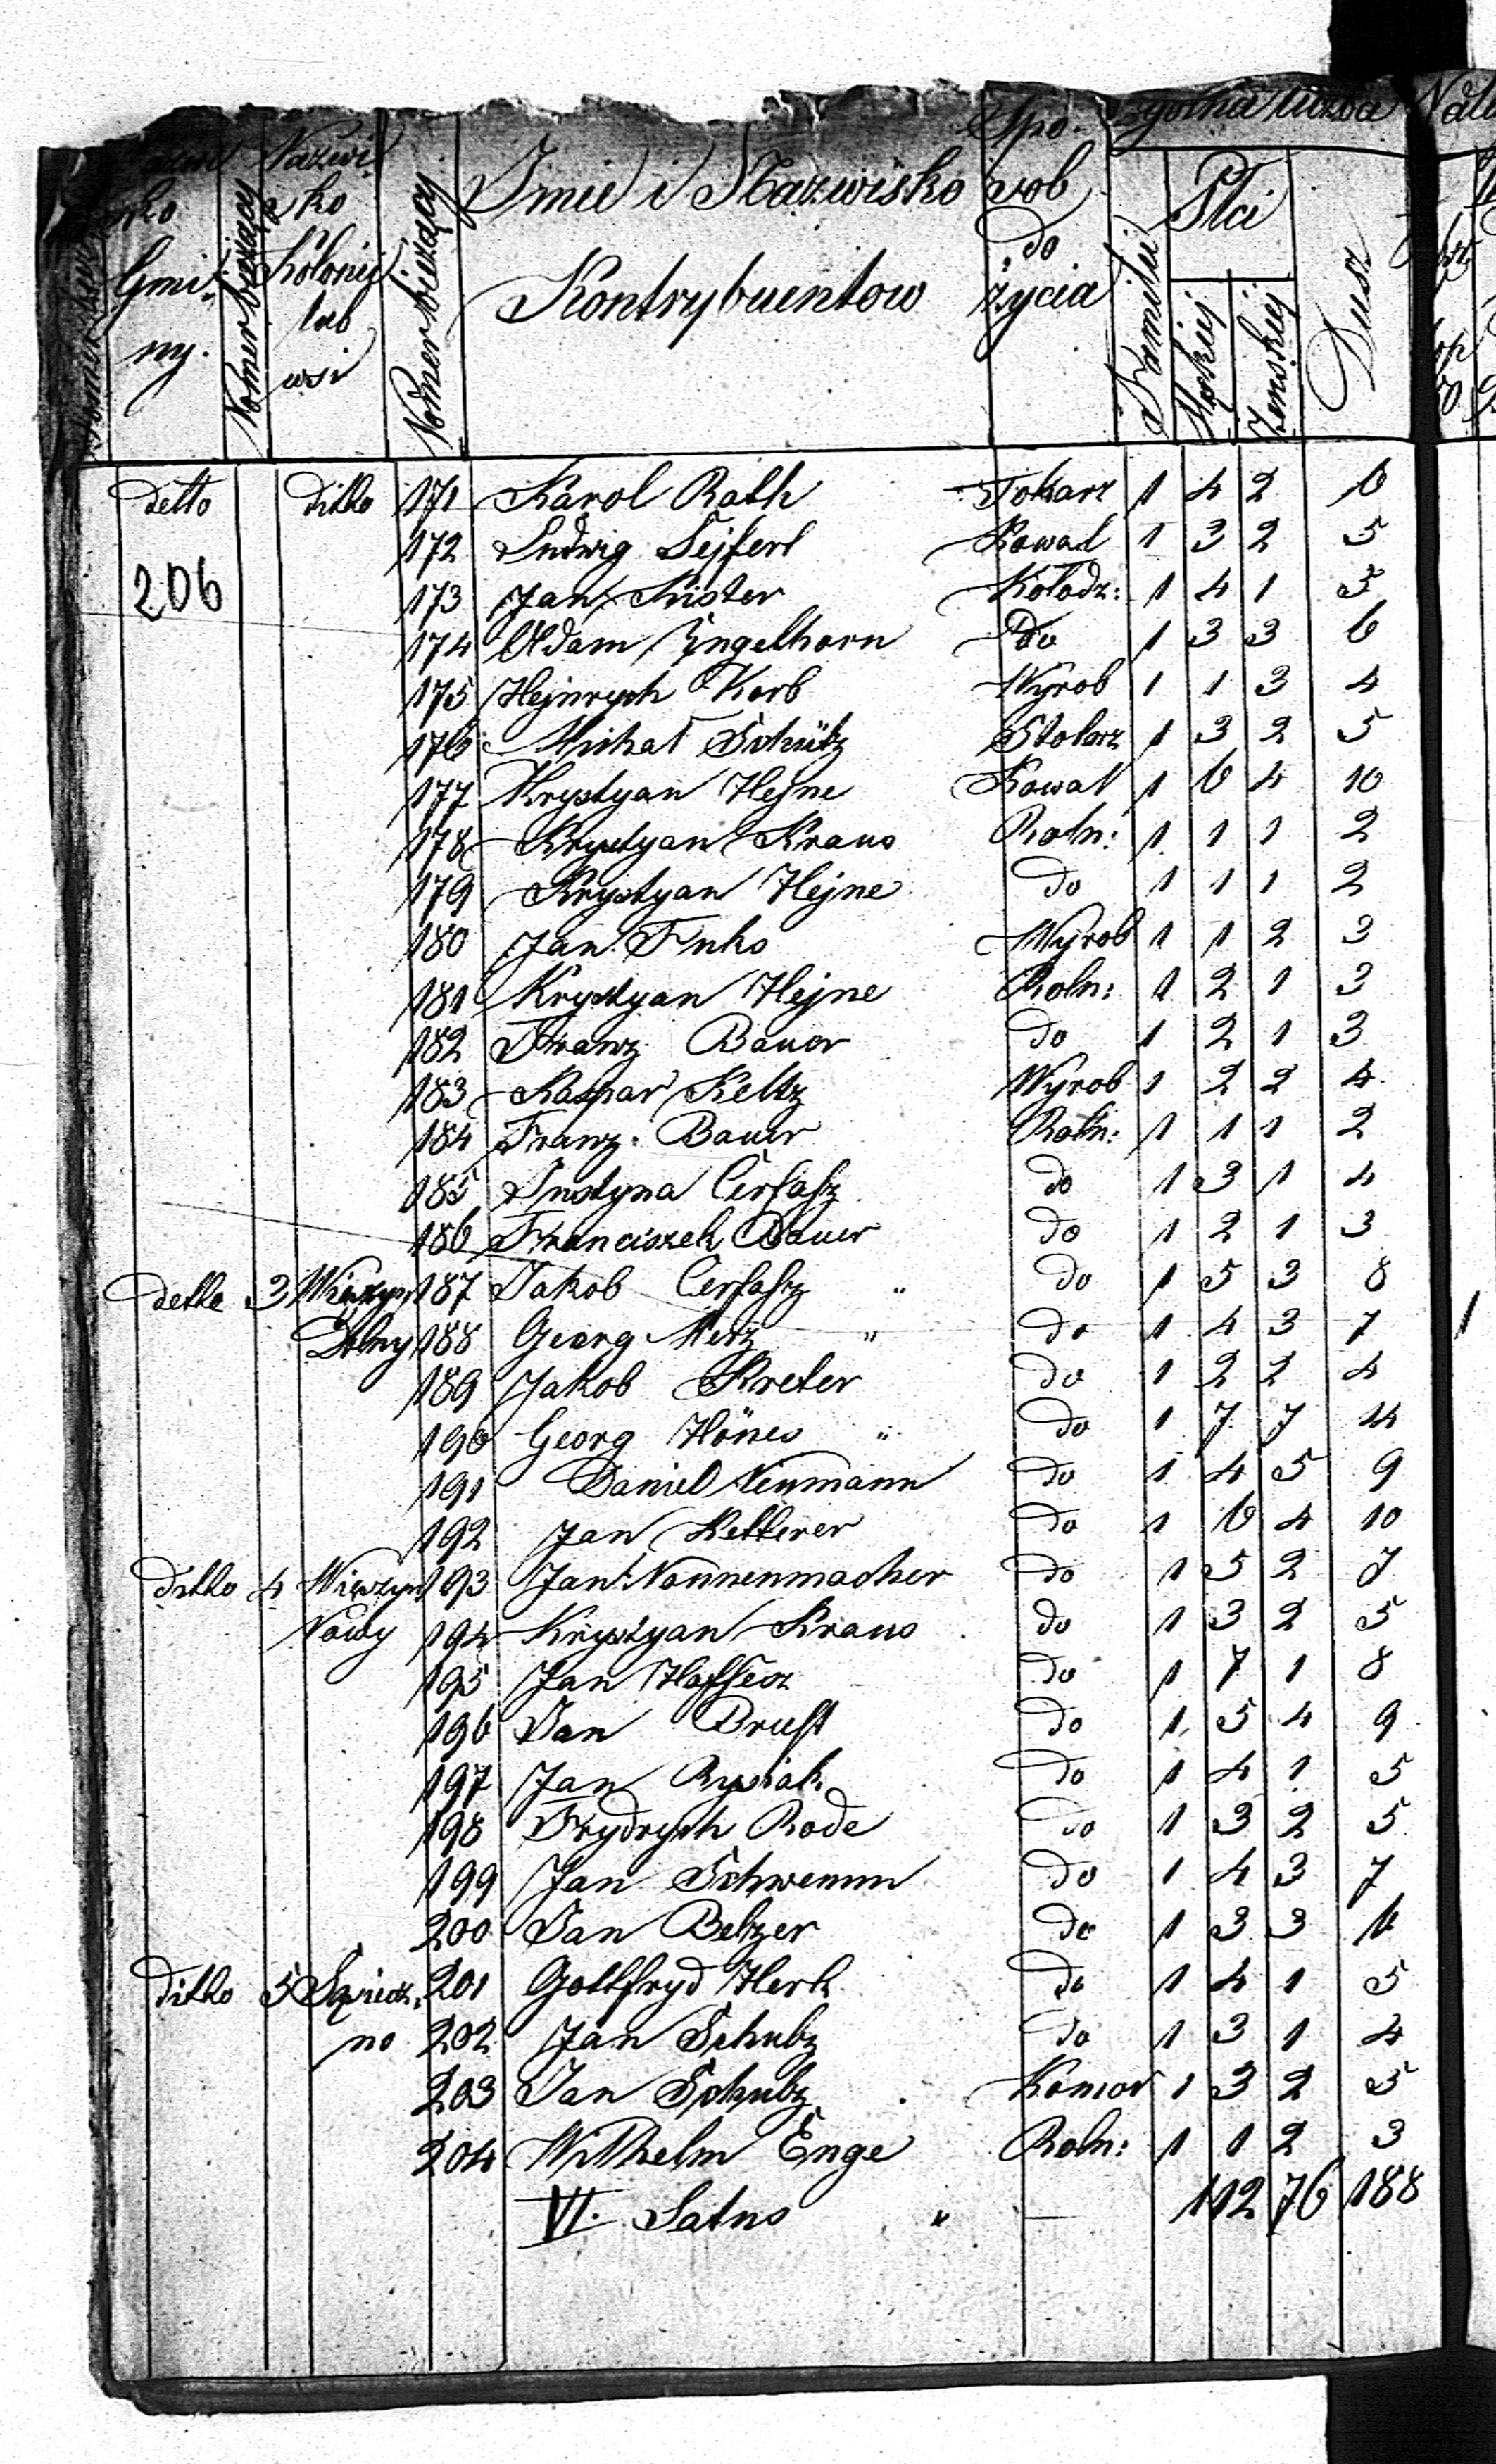 Spo- 
Nazwi
Imie i Nazwisko sob
sko
do
Gmi- Kolonij
Kontrybuentow życia
lub
ny. wsi
Nomer bieżący
Nomer bieżący
Familii
Płci
Męskiej
Żeńskiej
Dusz
detto ditto 171 Karol Rath Tokarz 1 4 2 6
172 Ludwig Sejfert Kowal 1 3 2 5
206
173 Jan Kister Kołodz: 1 4 1 5
174 Adam Engelhorn do 1 3 3 6
175 Hejnrych Korb Wyrob 1 1 3 4
176 Michał Schütz Stolarz 1 3 2 5
177 Krystyan Hejne Kowal 1 6 4 10
178 Krystyan Kraus Roln: 1 1 1 2
179 Krystyan Hejne do 1 1 1 2
180 Jan Wyrob 1 1 2 3
181 Krystyan Hejne Roln: 1 2 1 3
182 Franz Bauer do 1 2 1 3
183 Kaspar Keltz Wyrob 1 2 2 4
184 Franz. Bauer Roln: 1 1 1 2
185 Justyna Cerfasz do 1 3 1 4
186 Franciszek Bauer do 1 2 1 3
detto 3 187 Jakob Cerfasz " do 1 5 3 8
Dolny 188 Georg Merz " do 1 4 3 7
189 Jakob Kreter do 1 2 2 4
190 Georg Hönes " do 1 7 7 14
191 Daniel Neumann do 1 4 5 9
192 Jan Ketterer do 1 6 4 10
ditto 4 Wiączyn 193 Jan Nonnenmacher do 1 5 2 7
Nowy 194 Krystyan Kraus do 1 3 2 5
195 Jan do 1 7 1 8
196 Jan Brust do 1 5 4 9
197 Jan Rysiak do 1 4 1 5
198 Frydrych Rode do 1 3 2 5
199 Jan Schwemm do 1 4 3 7
200 Jan Belzer do 1 3 3 6
ditto 5 201 Gottfryd Herk do 1 4 1 5
no 202 Jan Schulz do 1 3 1 4
203 Jan Schulz Komor 1 3 2 5
204 Wilhelm Enge Roln: 1 1 2 3
VI. Latus " — 112 76 188